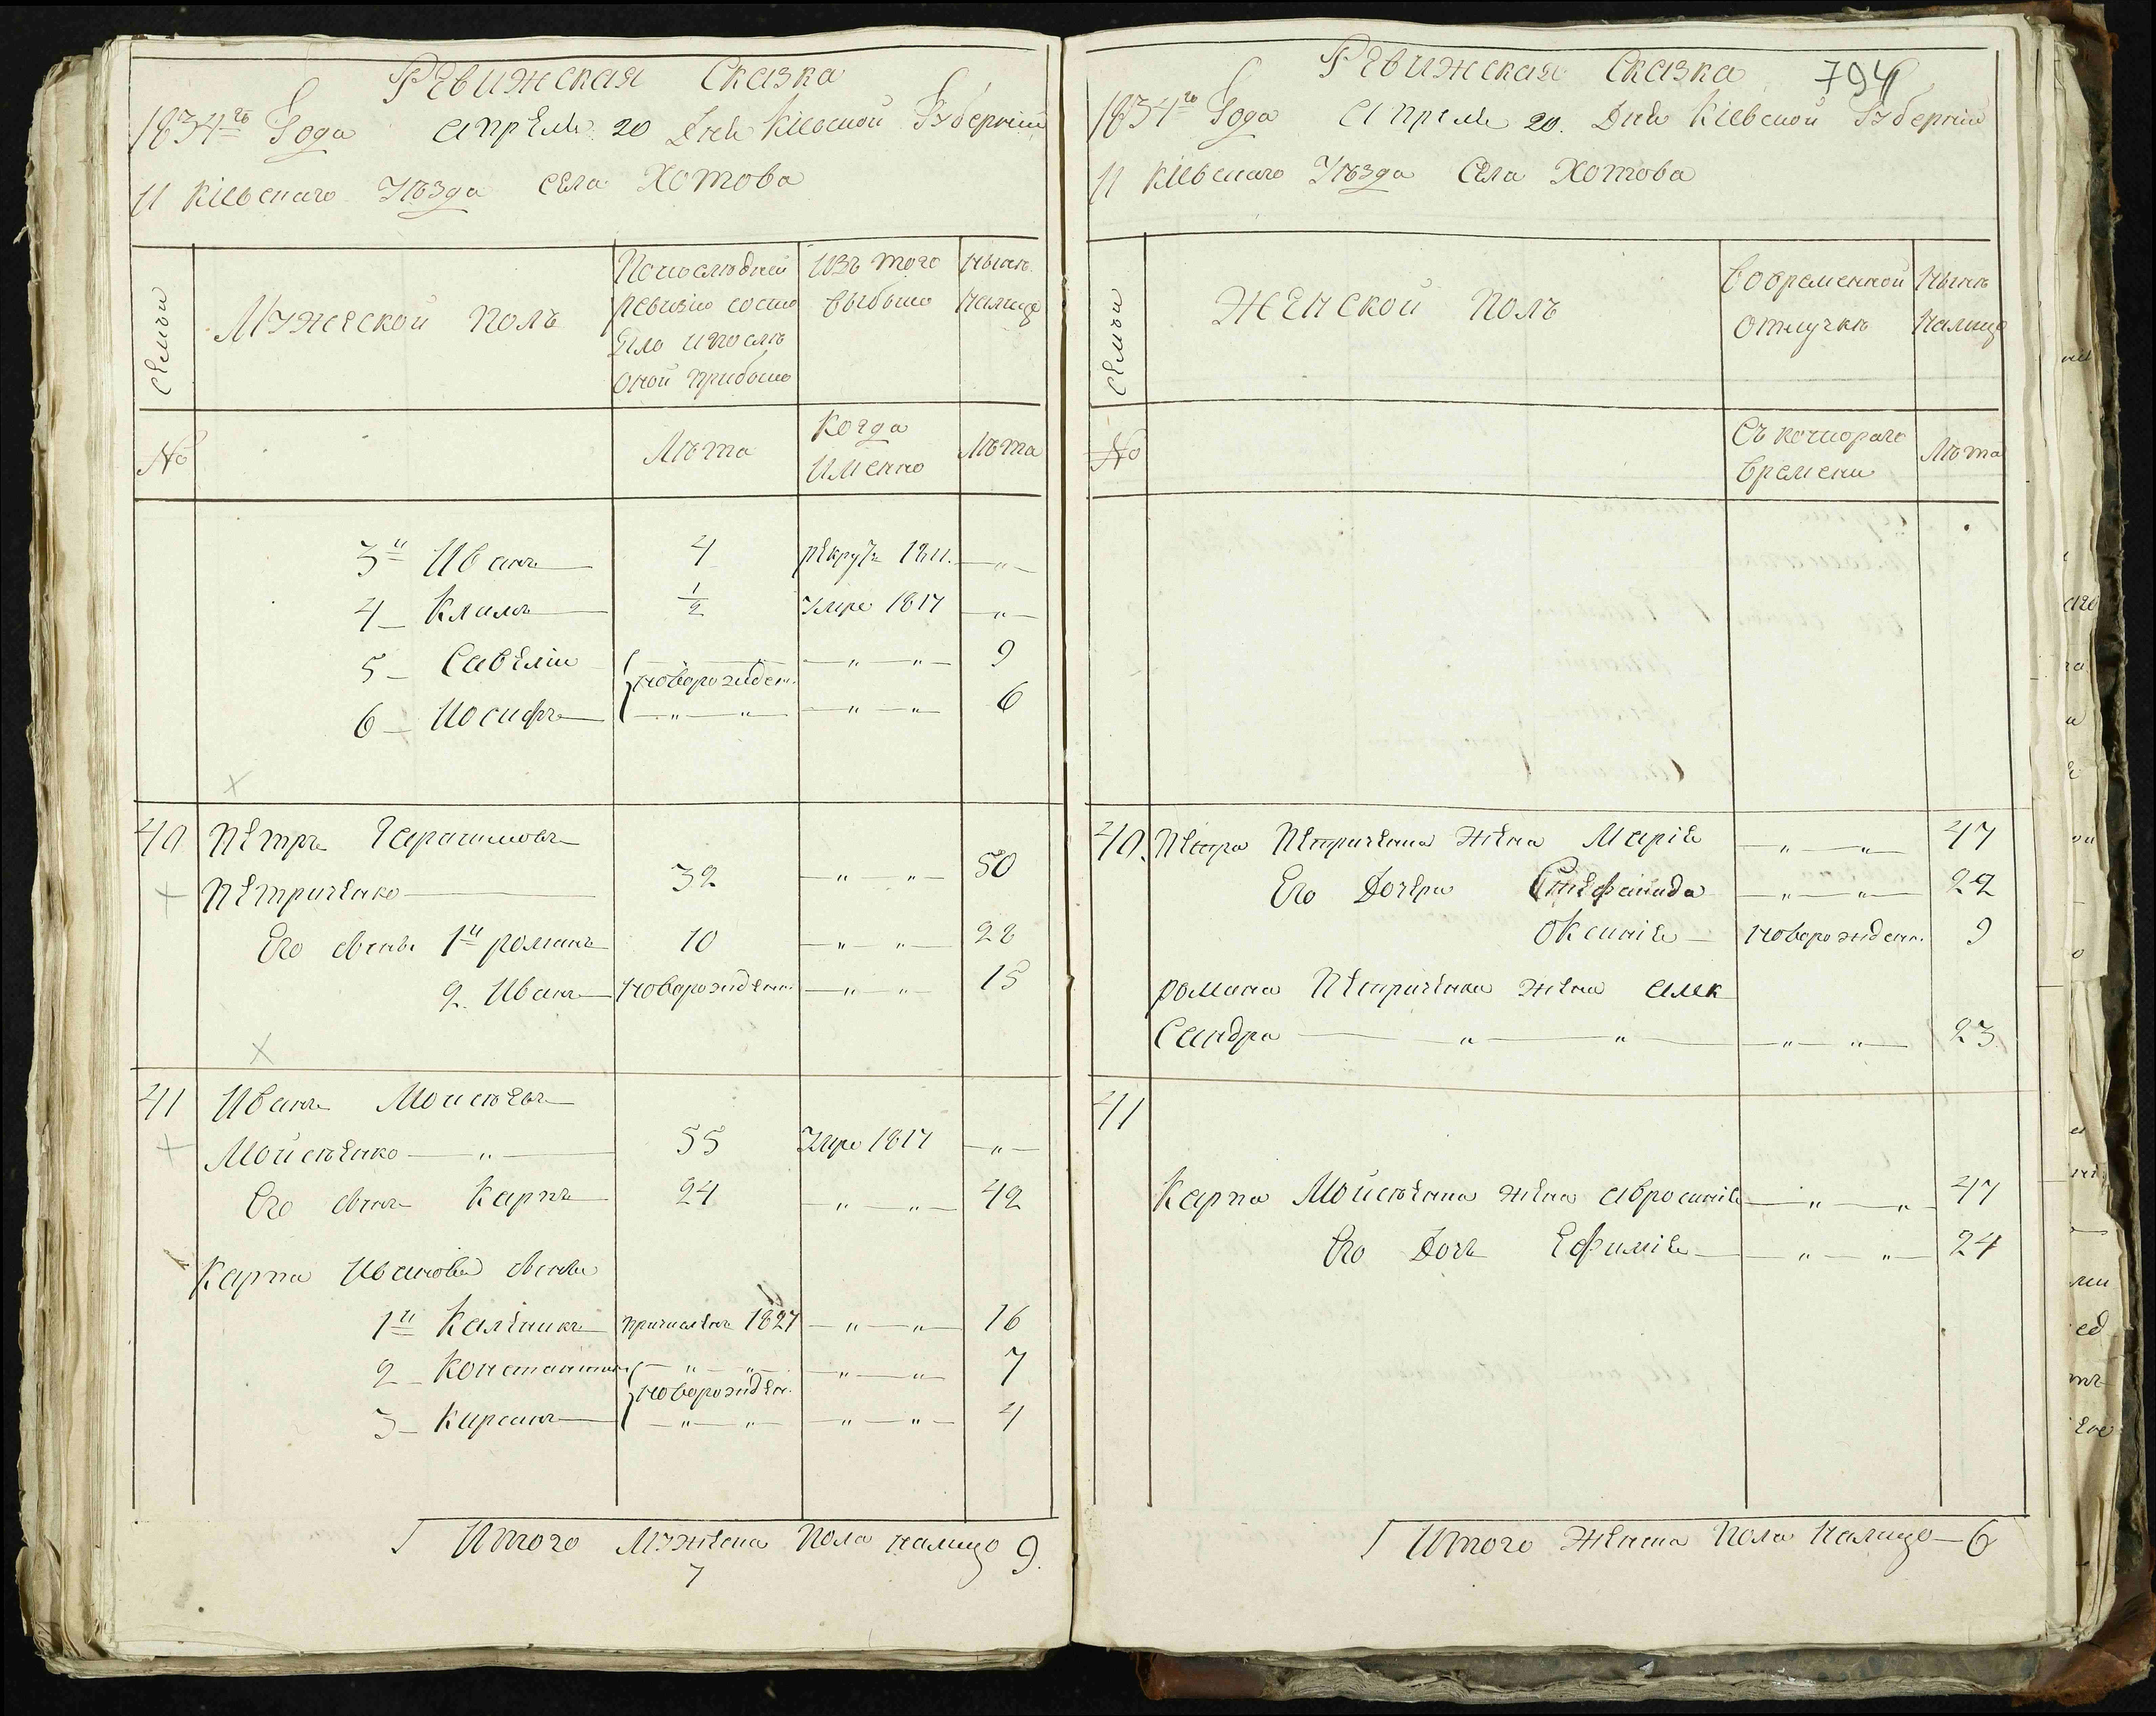 Ревижская Сказка
1834го Года апреля 20 Дня Кіевской Губерніи
И Кіевскаго Уѣзда села Хотова
Семьи
Мужеской полъ
Попоследней ревизіи состояло и после оной прибыло
Изъ того выбыло
Нынѣ налицо
№
Лѣта
Когда Именно
Лѣта
3й Иванъ 4 рекрутъ 1811. — " —
4 — Климъ 1/2 Умре 1817 — " —
5 — Савелій новорожден. — " — " — 9
6 — Иосифъ — " — " — — " — " — 6
40 Петръ Гарасимовъ
Петриченко 32 — " — " — 50
Его сыны 1й романъ 10 — " — " — 28
2. Иванъ новорожденн. — " — " — 15
41 Иванъ Моисѣевъ
Мойсѣенко — " — 55 Умре 1817 — " —
Его сынъ Карпъ 24 — " — " — 42
Карпа Иванова сыны
1й Каленикъ причисленъ 1827 — " — " — 16
2 — Константинъ — " — " — — " — " — 7
новорожден.
3 — Кирсанъ — " — " — — " — " — 4
Итого Мужеска Пола налицо 9.
7
Ревижская Сказка 794
1834го Года Апреля 20. Дня Кіевской Губерніи
И Кіевскаго Уѣзда Села Хотова
Семьи
Женской полъ
Вовременной отлучкѣ
Нынѣ налицо
№
Съ котораго времени
Лѣта
40. Петра Петриченка жена Марія — " — " — 47
Его Дочери Стефанида — " — " — 22
Оксинія — новорожденн. 9
романа Петриченка жена алек
Сандра — " — " — — " — " — 23
41
Карпа Мойсѣенка жена авросинія — " — " — 47
Его Дочь Ефимія — " — " — 24
Итого Женска Пола Налицо — 6